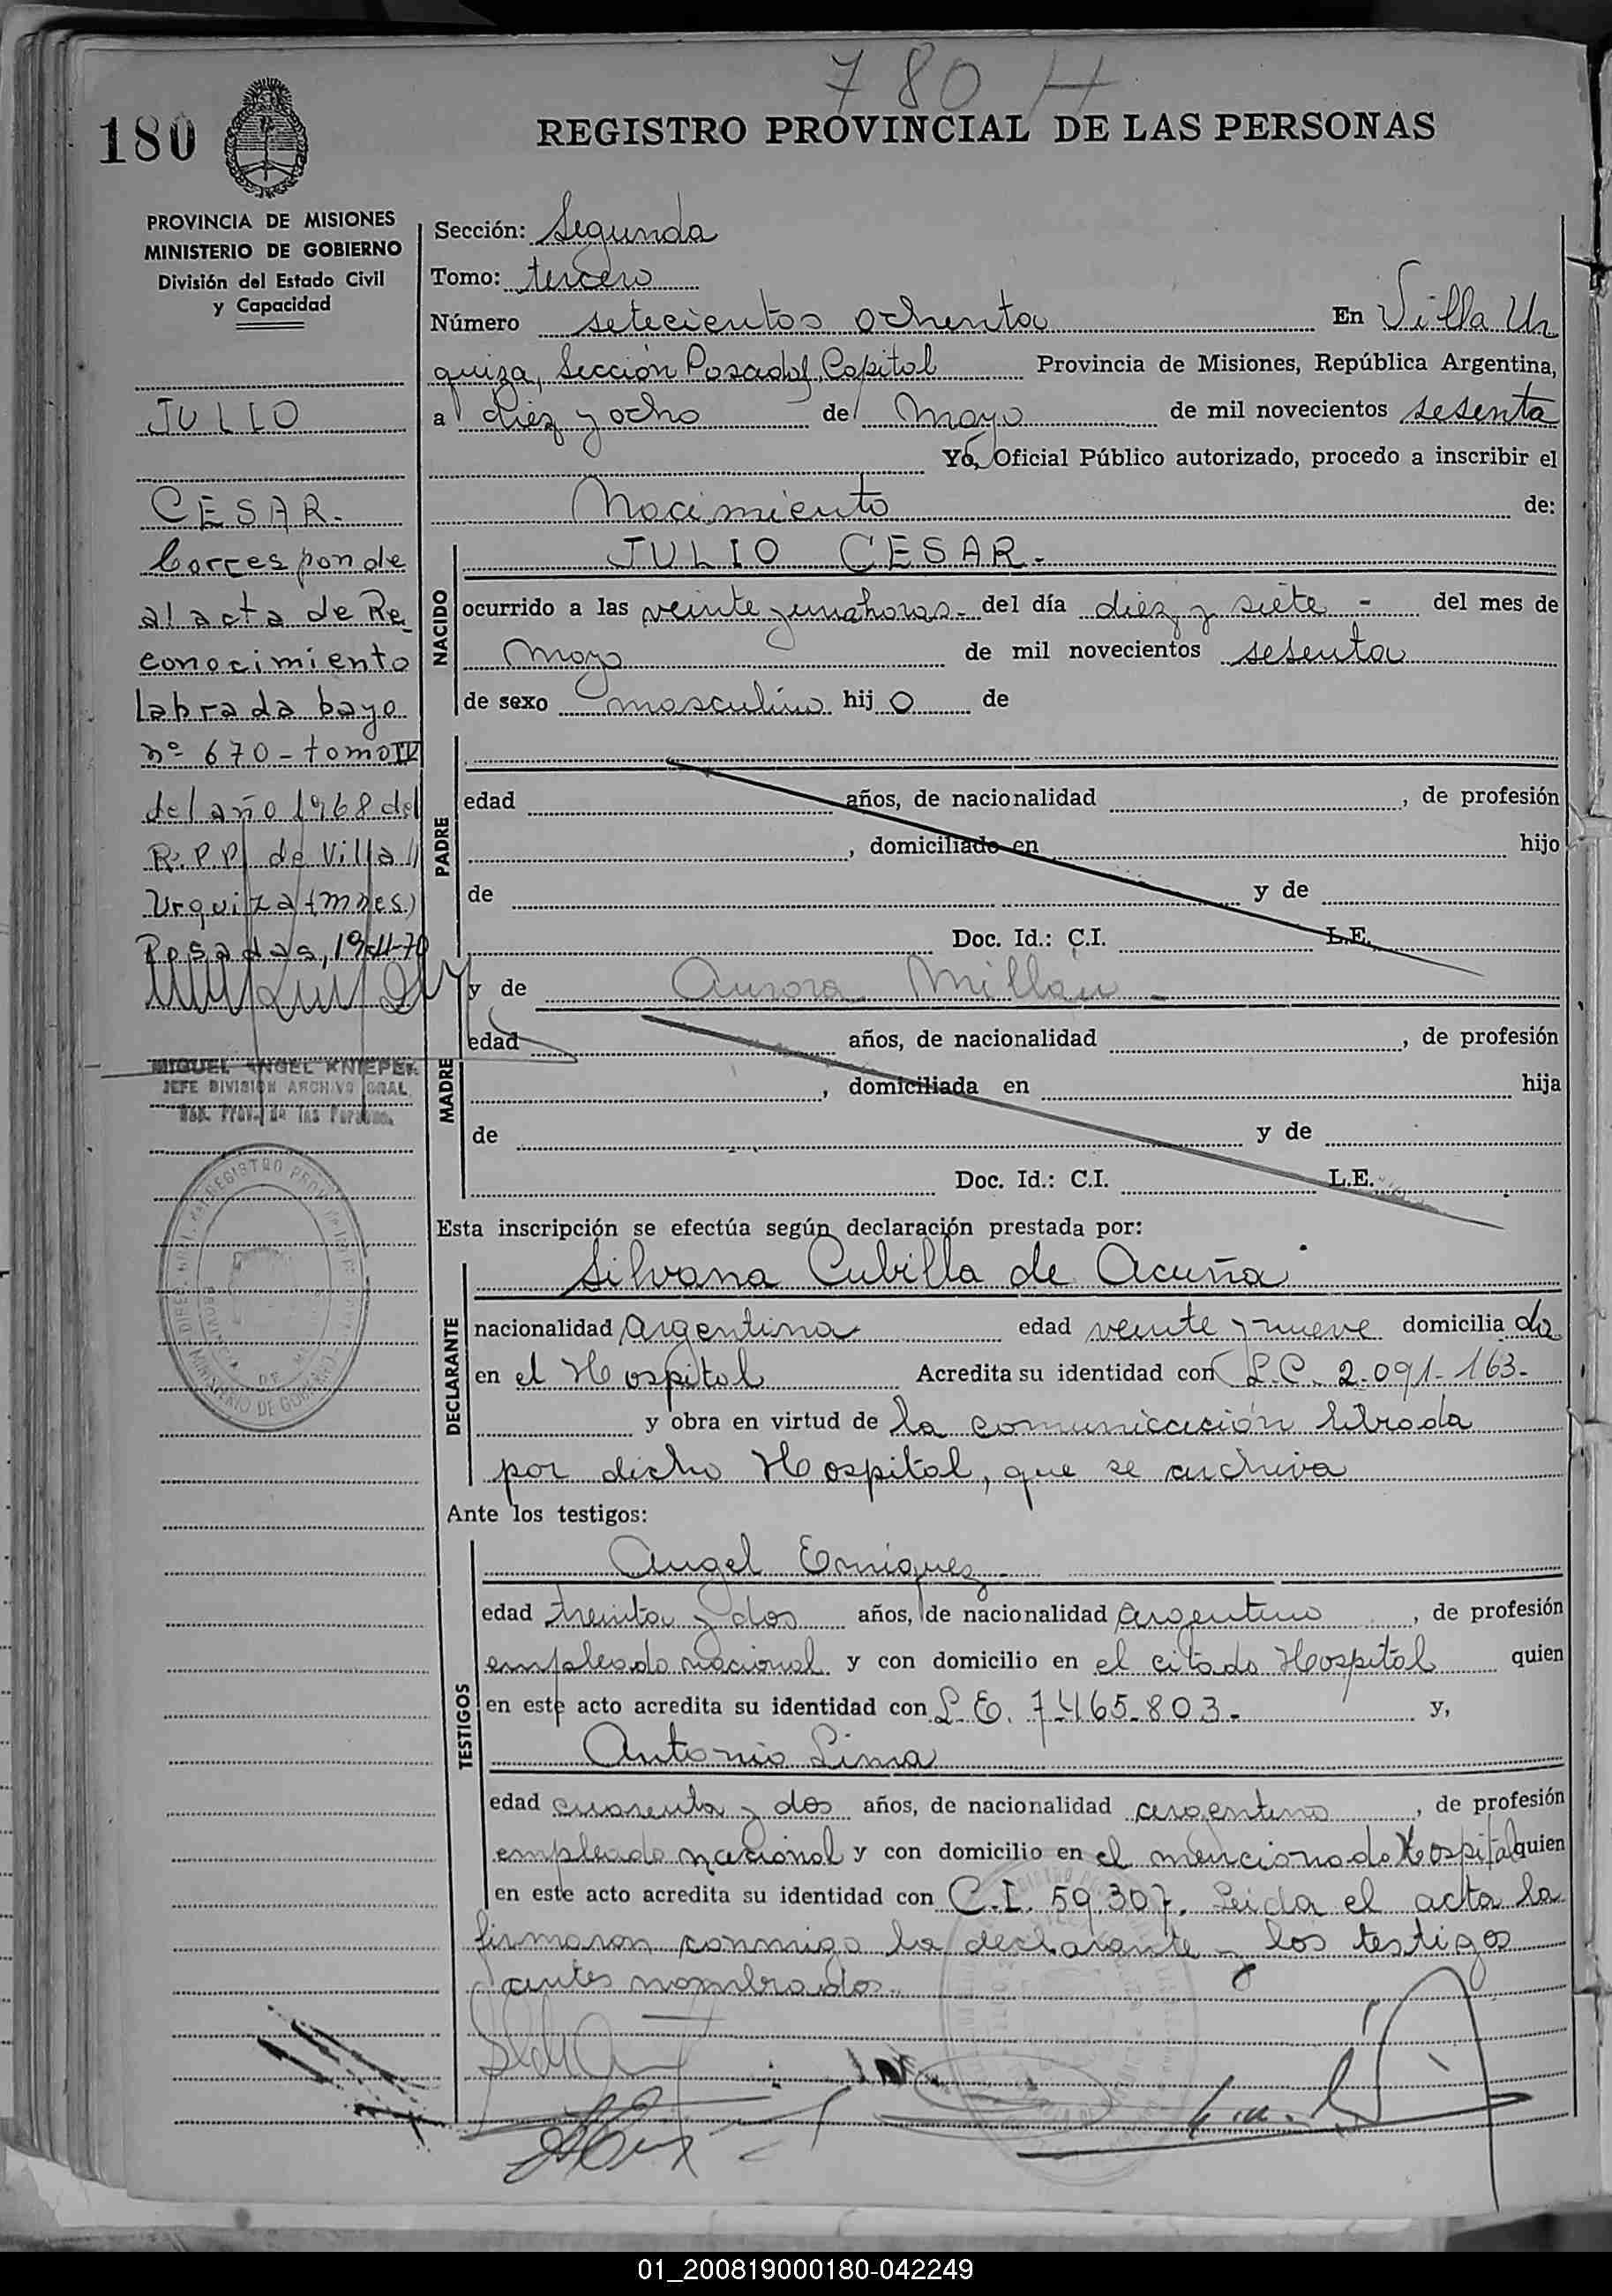 780 H
180
REGISTRO PROVINCIAL DE LAS PERSONAS
PROVINCIA DE MISIONES
MINISTERIO DE GOBIERNO
División del Estado Civil
y Capacidad
JULIO
CESAR.-
Corresponde
al acta de Re_
conocimiento
labrada bayo
nº 670 - tomo IV
del año 1968 del
R.P.P. de Villa
Urquiza (mnes)
Posadas, 19-11-70
MIGUEL ANGEL KNIEPER
JEFE DIVISION ARCHIVO GRAL.
Reg. Prov. de las Personas
Sección: Segunda
Tomo: tercero
Número setecientos ochenta En Villa Ur
quiza, Sección Posadas, Capital Provincia de Misiones, República Argentina,
a diez y ocho de mayo de mil novecientos sesenta
Yo, Oficial Público autorizado, procedo a inscribir el
Nacimiento de:
NACIDO
JULIO CESAR.-
ocurrido a las veinte y una horas.- del día diez y siete - del mes de
mayo de mil novecientos sesenta
de sexo masculino hij o de
PADRE
edad años, de nacionalidad , de profesión
, domiciliado en hijo
de y de
Doc. Id.: C.I. L.E.
MADRE
y de Aurora Millan -
edad años, de nacionalidad , de profesión
, domiciliada en hija
de y de
Doc. Id.: C.I. L.E.
Esta inscripción se efectúa según declaración prestada por:
DECLARANTE
Silvana Cubilla de Acuña
nacionalidad Argentina edad veinte y nueve domicilia da
en el Hospital Acredita su identidad con L.C. 2.091.163-
y obra en virtud de la comunicación librada
por dicho Hospital, que se archiva
Ante los testigos:
TESTIGOS
Angel Enriquez.-
edad treinta y dos años, de nacionalidad argentino , de profesión
empleado nacional y con domicilio en el citado Hospital quien
en este acto acredita su identidad con L.E. 7.465.803- y,
Antonio Lima
edad cuarenta y dos años, de nacionalidad argentino , de profesión
empleado nacional y con domicilio en el mencionado Hospital quien
en este acto acredita su identidad con C.I. 59.307. Leida el acta la
firmaron conmigo la declarante y los testigos
antes nombrados.
01_200819000180-042249